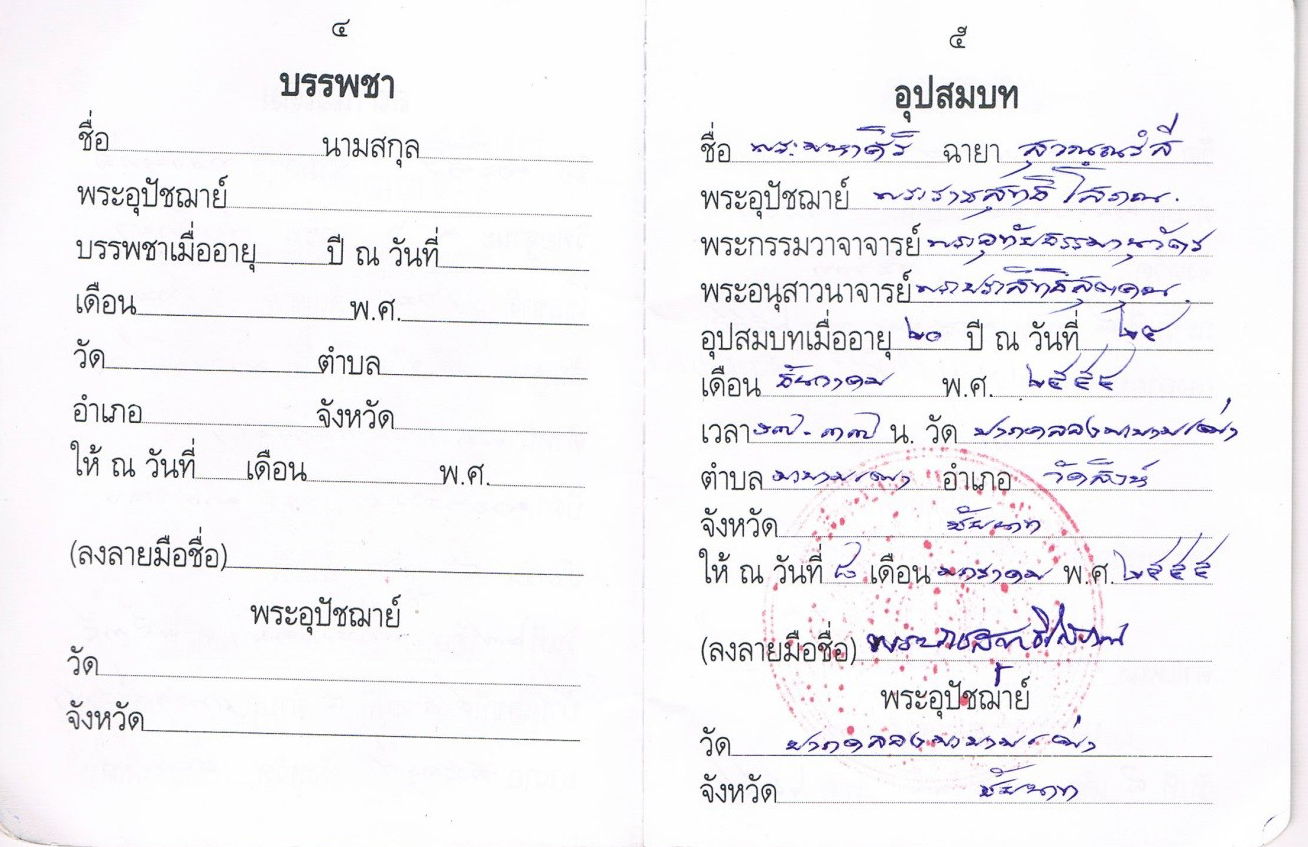 ๔
บรรพชา
ชื่อ นามสกุล
พระอุปัชฌาย์
บรรพชาเมื่ออายุ ปี ณ วันที่
เดือน พ.ศ.
วัด ตำบล
อำเภอ จังหวัด
ให้ ณ วันที่ เดือน พ.ศ.
(ลงลายมือชื่อ)
พระอุปัชฌาย์
วัด
จังหวัด
๕
อุปสมบท
ชื่อ พระมหาคีรี ฉายา
พระอุปัชฌาย์ พระราชสุทธิโสภณ
พระกรรมวาจาจารย์
พระอนุสาวนาจารย์
อุปสมบทเมื่ออายุ ๒๐ ปี ณ วันที่ ๒๔
เดือน ธันวาคม พ.ศ.
เวลา น. วัด ปากคลองมะขามเฒ่า
ตำบล มะขามเฒ่า อำเภอ วัดสิงห์
จังหวัด ชัยนาท
ให้ ณ วันที่ ๘ เดือน มกราคม พ.ศ. ๒๕๕๕
(ลงลายมือชื่อ) พระราชสุทธิโสภณ
พระอุปัชฌาย์
วัด ปากคลองมะขามเฒ่า
จังหวัด ชัยนาท